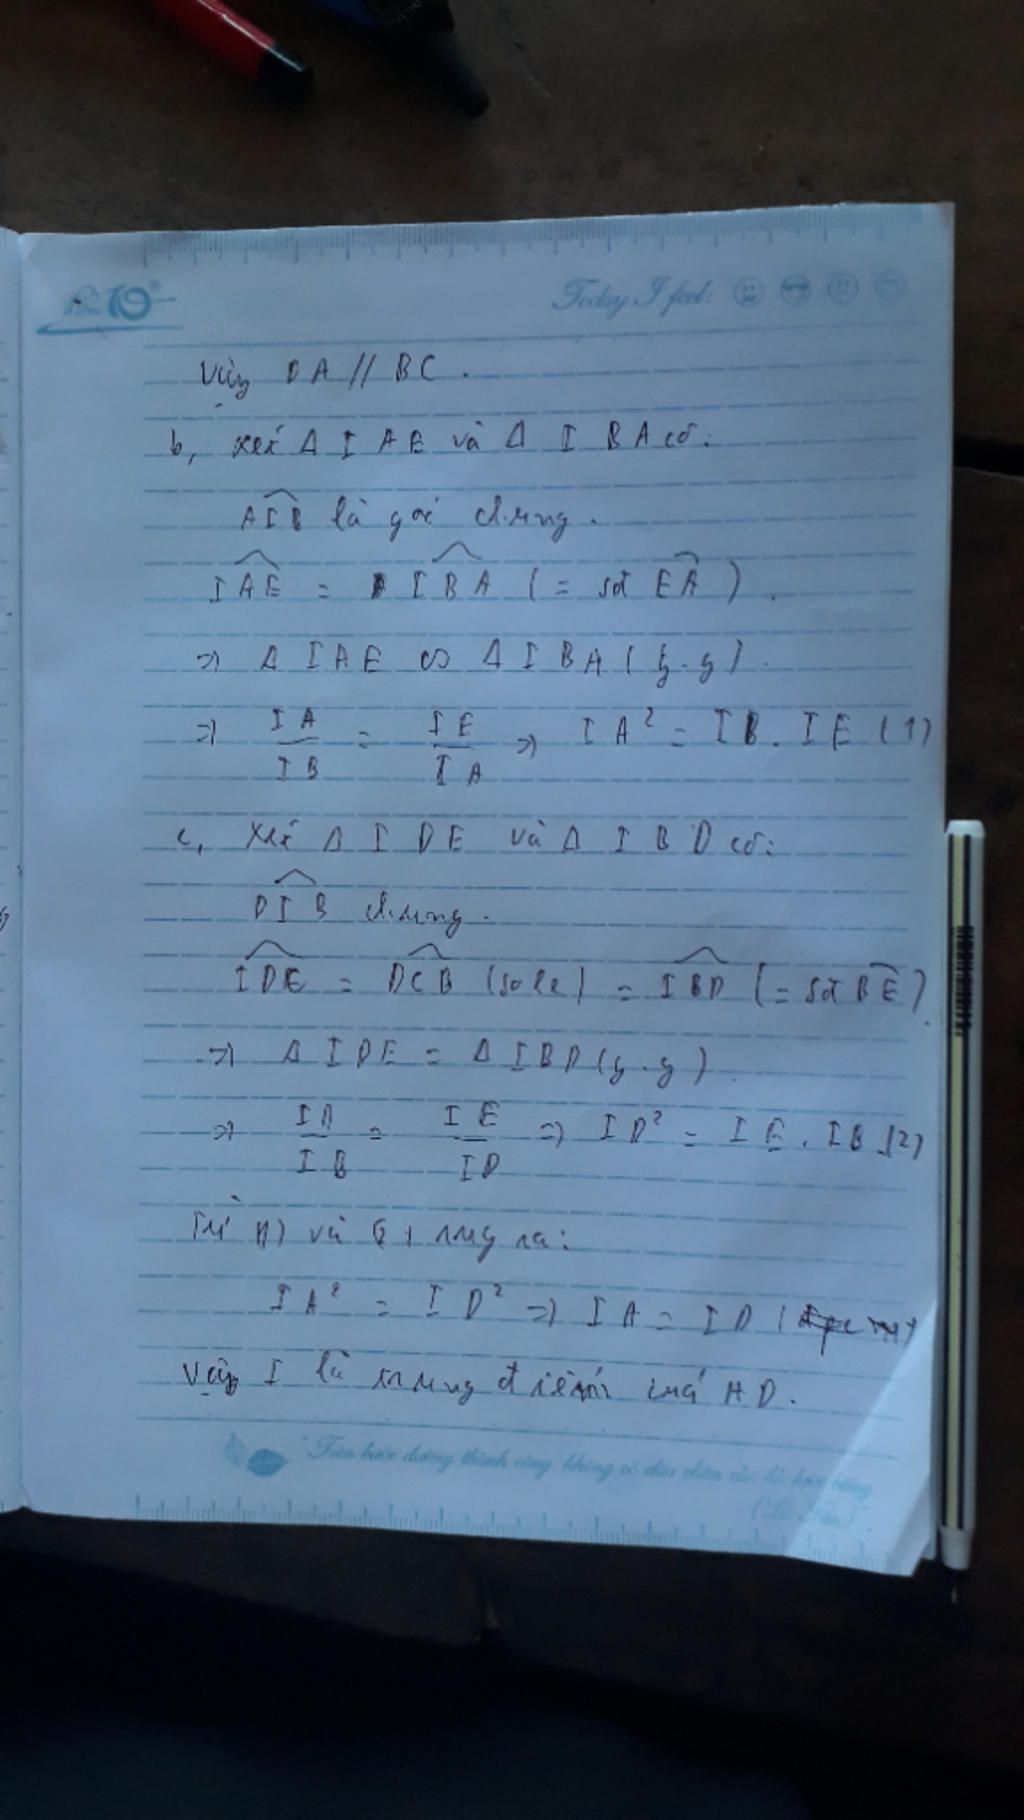 Today I feel:
Vậy DA // BC.
b, xét Δ IAE và Δ IBA có:
AIB là góc chung.
IAE = IBA (= sđ EA).
=> Δ IAE ∽ Δ IBA (g.g).
=> IA/IB = IE/IA => IA² = IB. IE (1)
c, Xét Δ IDE và Δ IBD có:
DIB chung.
IDE = DCB (so le) = IBD (= sđ BE).
=> Δ IDE = Δ IBD (g.g).
=> ID/IB = IE/ID => ID² = IE. IB (2)
Từ (1) và (2) suy ra:
IA² = ID² => IA = ID (đpcm)
Vậy I là trung điểm của AD.
"Trên bước đường thành công, không có dấu chân của kẻ lười biếng
(Lỗ Tấn)